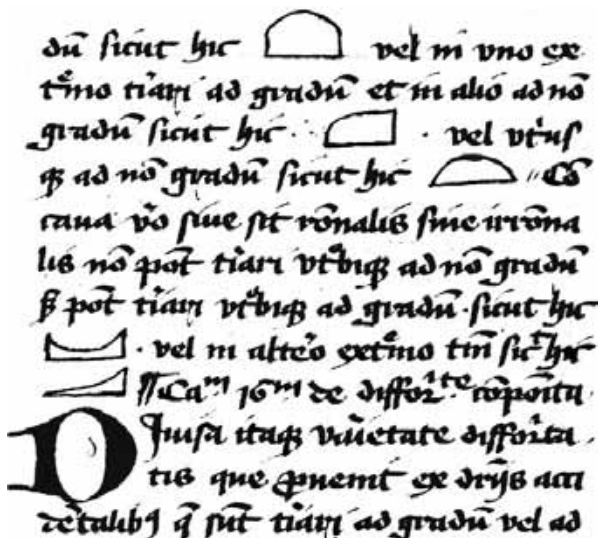 dū sicut hic vel in vno ex
t͛mo t̄iari ad gradū et in alio ad nō
gradū sicut hic · vel vt̄us
qꝫ ad nō gradū sicut hic Cō
caua v̄o siue sit rōnalis siue irrōna
lis nō pōt t̄iari vt̄biqꝫ ad nō gradū
pōt t̄iari vt̄biqꝫ ad gradū · sicut hic
· vel in alt̄o ext̄mo tm̄ sic̄ hic
¶ Caᵐ 16ᵐ de diffor̄ᵗᵉ cōpōita
Diuisa itaqꝫ vnīetate diffor̄ta
tis que ꝓuenit ex dr̄ijs acci
dētalibꝰ q̄ sūt t̄iari ad gradū vel ad